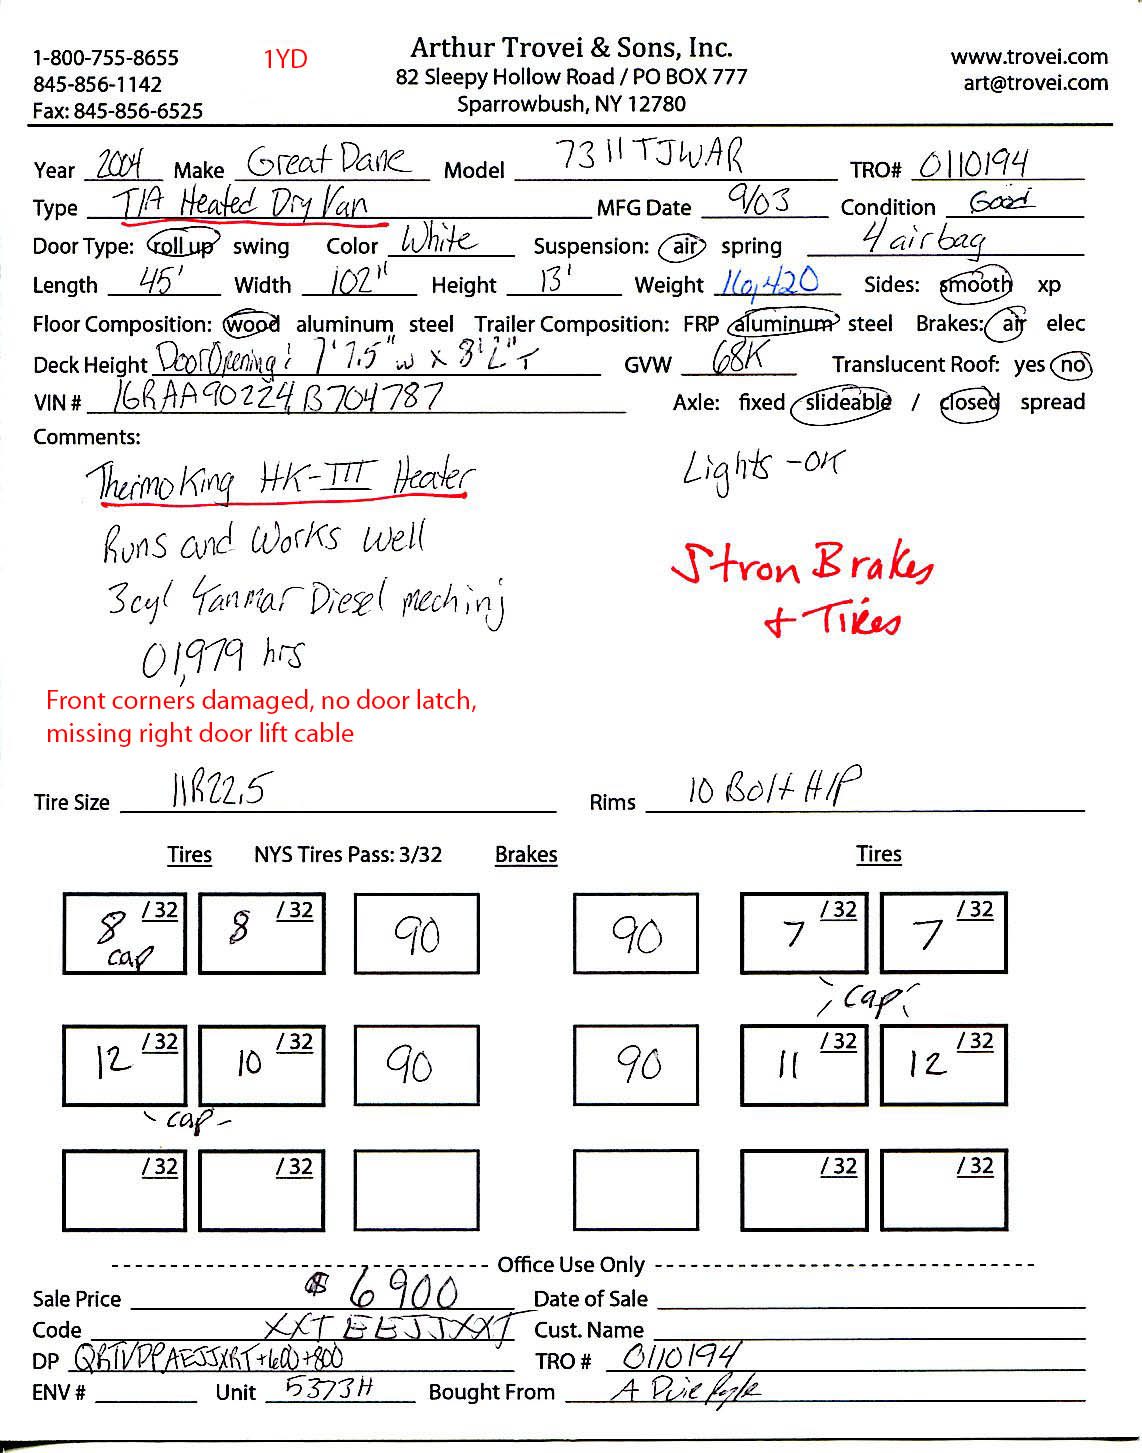 1-800-755-8655 1YD Arthur Trovei & Sons, Inc. www.trovei.com
845-856-1142 82 Sleepy Hollow Road / PO BOX 777 art@trovei.com
Fax: 845-856-6525 Sparrowbush, NY 12780
Year 2004 Make Great Dane Model 7311TJWAR TRO# 0110194
Type T/A Heated Dry Van MFG Date 9/03 Condition Good
Door Type: roll up swing Color White Suspension: air spring 4 airbag
Length 45' Width 102" Height 13' Weight 16,420 Sides: smooth xp
Floor Composition: wood aluminum steel Trailer Composition: FRP aluminum steel Brakes: air elec
Deck Height Door Opening: 7'7.5"w x 8'2"T GVW 68K Translucent Roof: yes no
VIN # 1GRAA90224B704787 Axle: fixed slideable / closed spread
Comments:
Thermo King HK-III Heater Lights -OK
Runs and Works Well
Stron Brakes
3cyl Yanmar Diesel mech inj
+ Tires
01,979 hrs
Front corners damaged, no door latch,
missing right door lift cable
Tire Size 11R22.5 Rims 10 Bolt H/P
Tires NYS Tires Pass: 3/32 Brakes Tires
8 /32 8 /32 90 90 7 /32 7 /32
cap
cap
12 /32 10 /32 90 90 11 /32 12 /32
- cap -
/32 /32 /32 /32
Office Use Only
Sale Price $6900 Date of Sale
Code XXTEEJJXXT Cust. Name
DP +600+800 TRO # 0110194
ENV # Unit 5373H Bought From A